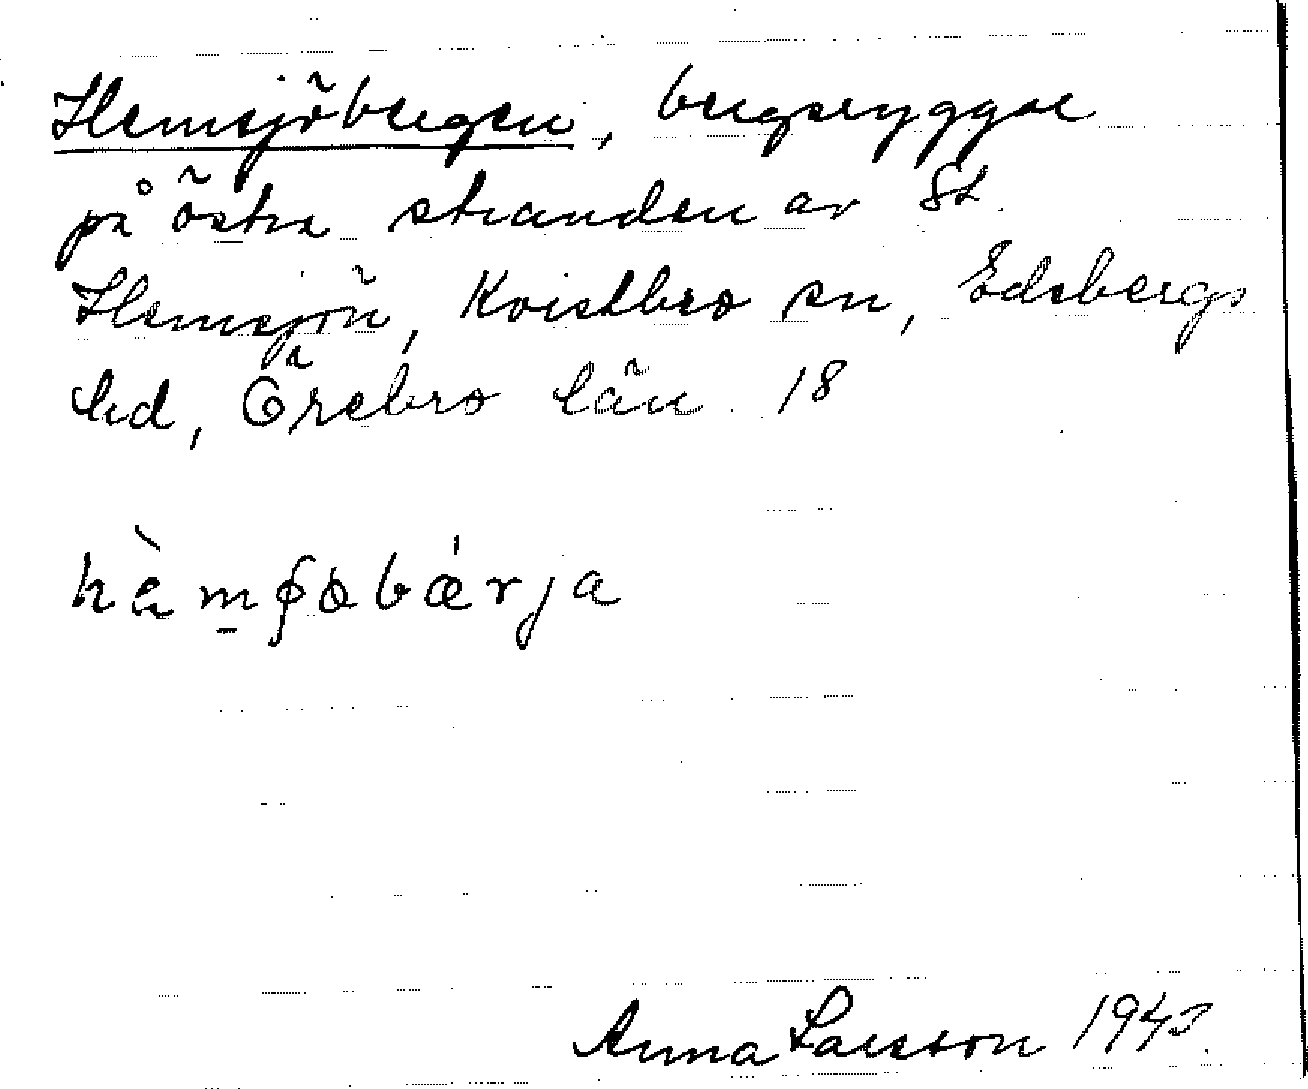 Hemsjöbergen, bergsryggar
på östra stranden av St.
Hemsjön, Kvistbro sn, Edsbergs
hd, Örebro län. 18
Anna Larsson 1943.